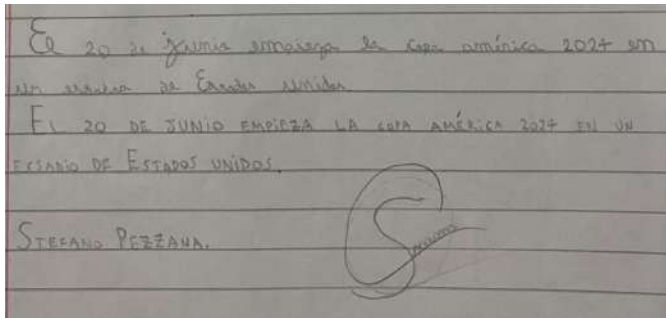 El 20 de junio empieza la copa américa 2024 en
un estadio de Estados unidos.
EL 20 DE JUNIO EMPIEZA LA COPA AMÉRICA 2024 EN UN
ESTADIO DE ESTADOS UNIDOS.
STEFANO PEZZANA.